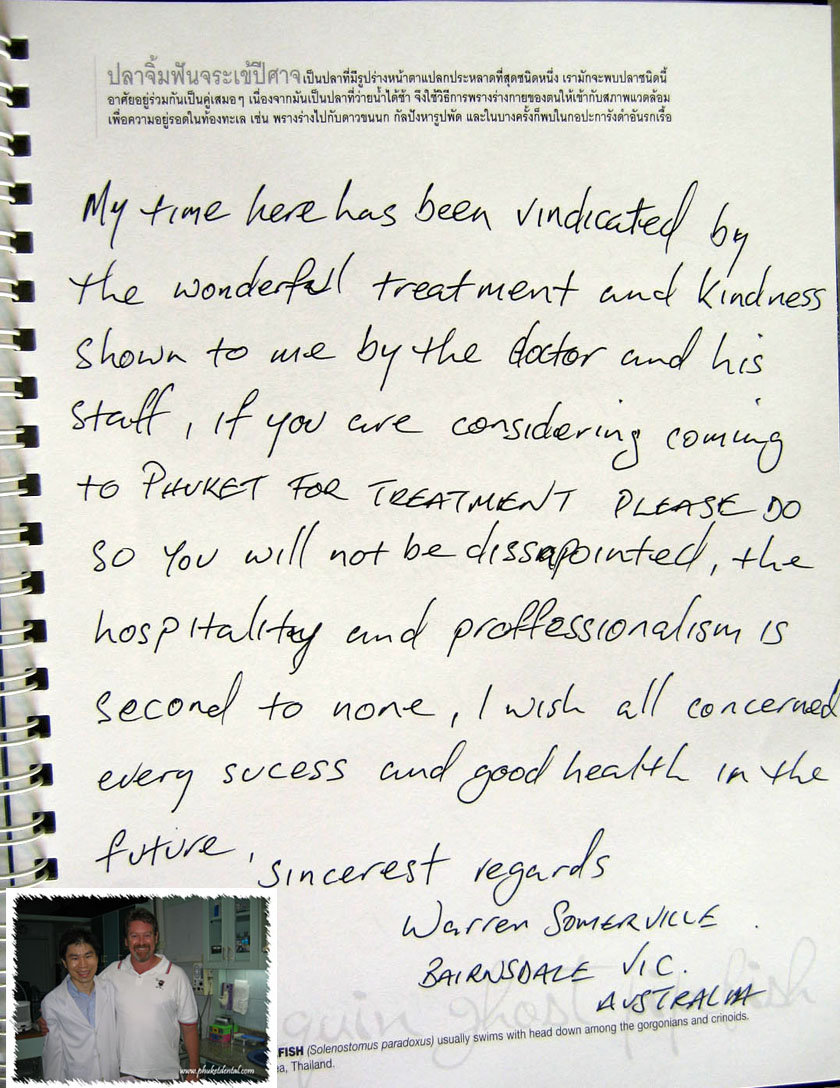 ปลาจิ้มฟันจระเข้ปีศาจเป็นปลาที่มีรูปร่างหน้าตาแปลกประหลาดที่สุดชนิดหนึ่ง เรามักจะพบปลาชนิดนี้
อาศัยอยู่ร่วมกันเป็นคู่เสมอๆ เนื่องจากมันเป็นปลาที่ว่ายน้ำได้ช้า จึงใช้วิธีการพรางร่างกายของตนให้เข้ากับสภาพแวดล้อม
เพื่อความอยู่รอดในท้องทะเล เช่น พรางร่างไปกับดาวขนนก กัลปังหารูปพัด และในบางครั้งก็พบในกอปะการังดำอันรกเรื้อ
My time here has been vindicated by
the wonderful treatment and kindness
shown to me by the doctor and his
staff, if you are considering coming
to PHUKET FOR TREATMENT PLEASE DO
so you will not be dissapointed, the
hospitality and proffessionalism is
second to none, I wish all concerned
every sucess and good health in the
future, sincerest regards
Warren SOMERVILLE.
BAIRNSDALE VIC.
AUSTRALIA
quin ghost pipefish
FISH (Solenostomus paradoxus) usually swims with head down among the gorgonians and crinoids.
ea, Thailand.
www.phuketdental.com